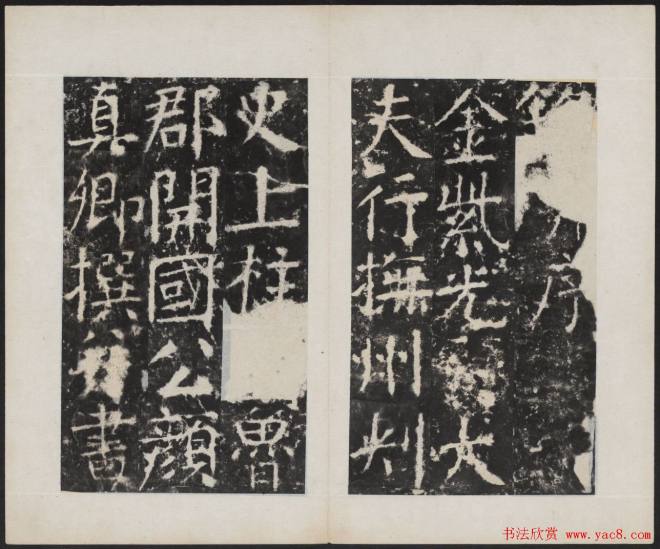 序
金紫光祿大
夫行撫州刺
史上柱魯
郡開國公顏
真卿撰并書
书法欣赏 www.yac8.com